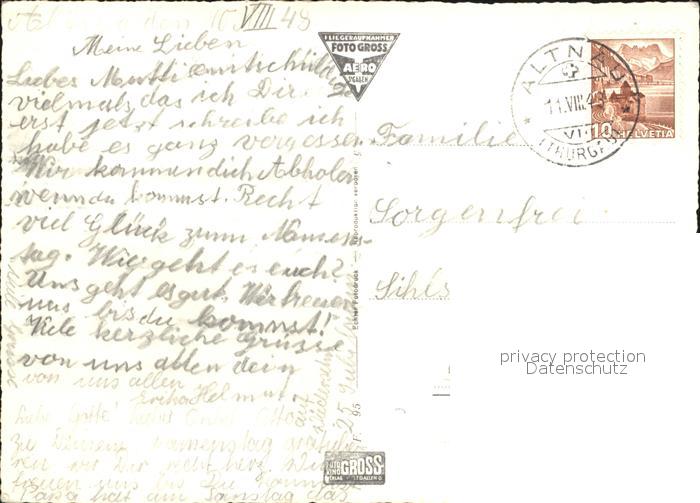 den 10. VIII 48
Meine Lieben
Liebes Mutti entschuld
vielmals das ich Dir
erst jetzt schreibe ich
habe es ganz vergessen.
Wir kommen dich Abholen
wenn du kommst. Recht
viel Glück zum Namens-
tag. Wie geht es euch?
Uns geht es gut. Wir freuen
uns bis du kommst!
Viele herzliche Grüsse
von uns allen dein
von uns allen
Erika Helmut
Liebe Gotte! Liebs Onkel Otto
zu Deinem Namenstag gratulie-
ren wir Dir recht herz. Wir
freuen uns bis Du kommst
Papa hat am Samstag das
auf
Wiedersehn
FLIEGERAUFNAHMEN
FOTO GROSS
AERO
ST. GALLEN
Echter Fotodruck — Reproduktion verboten
F. 95
FOTO GROSS
VERLAG ST. GALLEN
ALTNAU
11.VIII.48
(THURGAU)
10 HELVETIA
Familie
Sorgenfrei
Sihls
privacy protection
Datenschutz